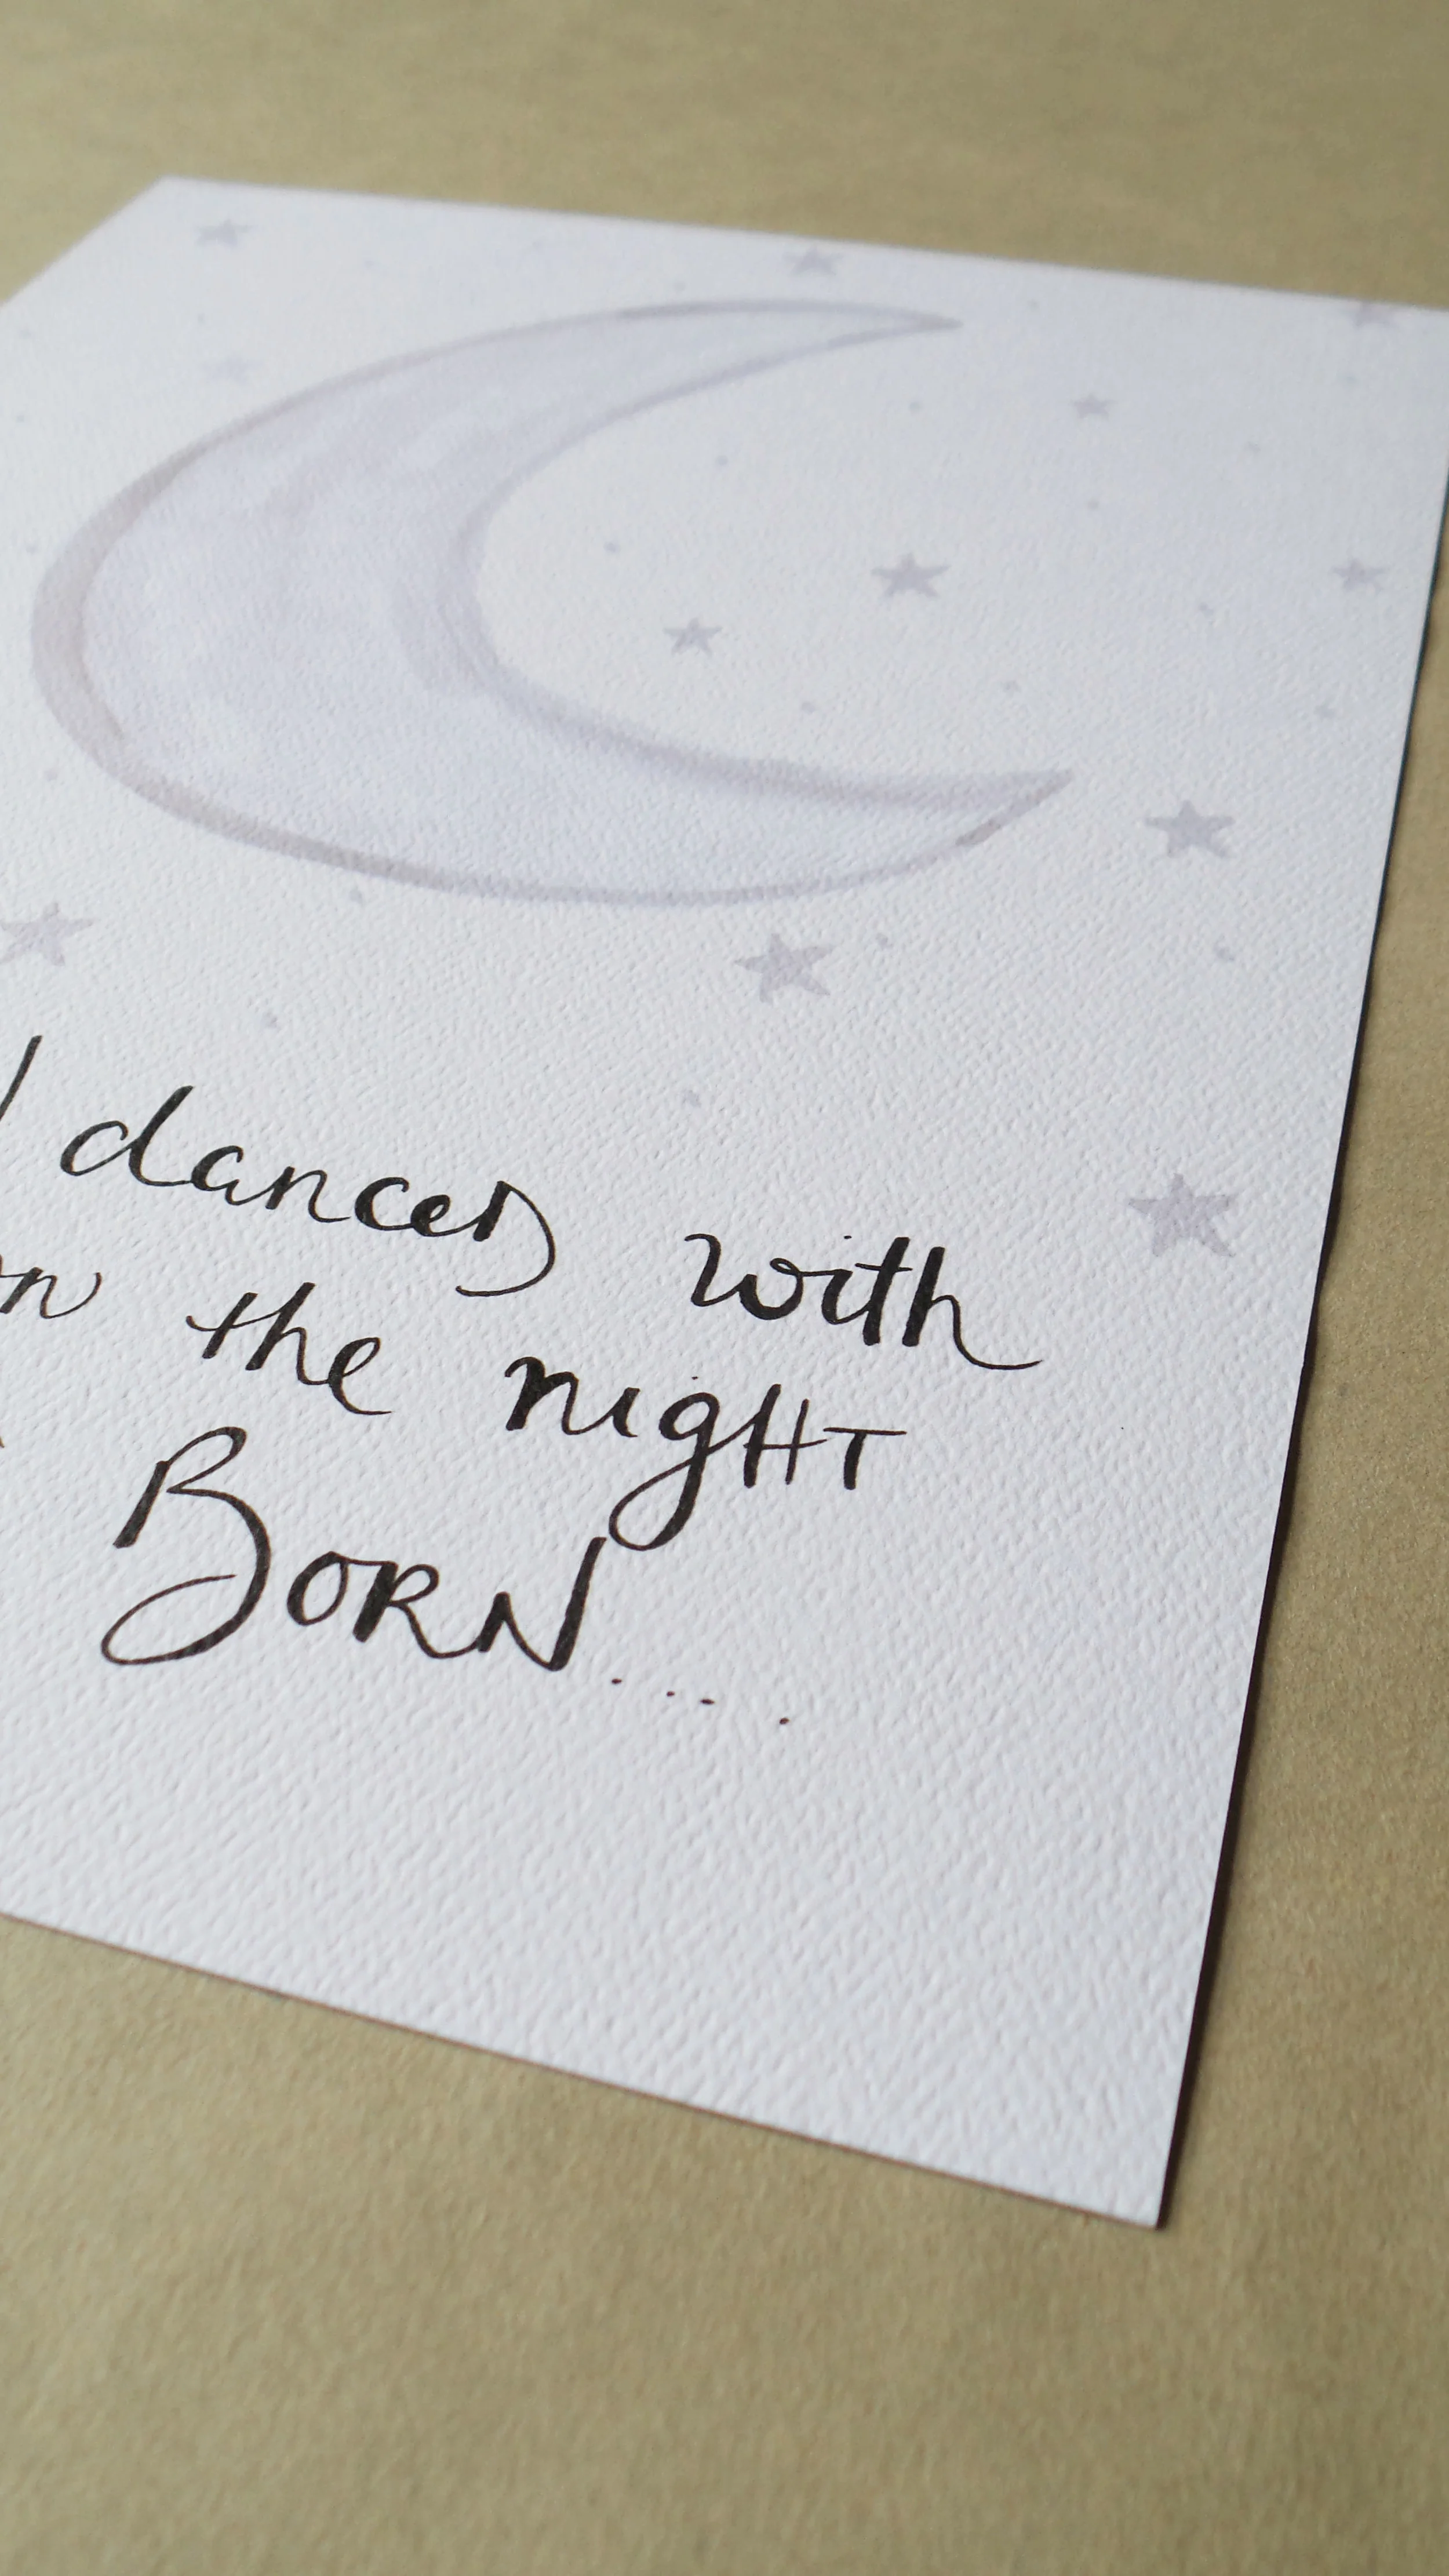 danced with
the night
BORN....